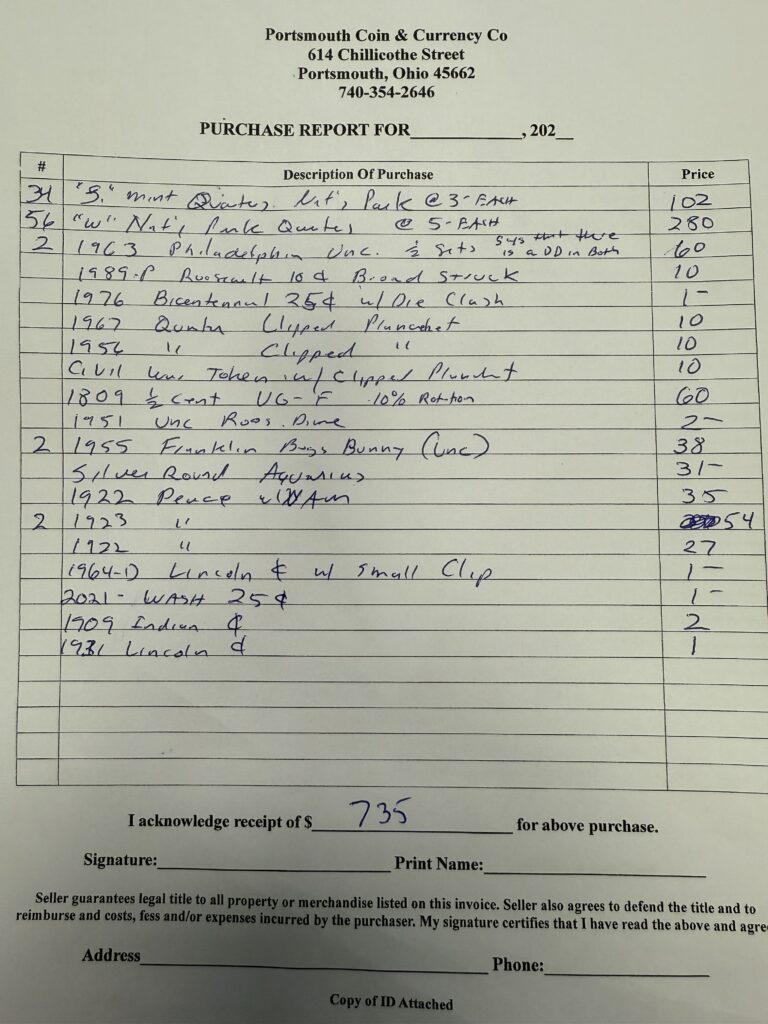 Portsmouth Coin & Currency Co
614 Chillicothe Street
Portsmouth, Ohio 45662
740-354-2646
PURCHASE REPORT FOR____________, 202__
# Description Of Purchase Price
34 "S." mint Quarters. Nat's Park @ 3- EACH 102
56 "W" Nat's Park Quates @ 5- EACH 280
2 1963 Philadelphia Unc. ½ Sets Says that there is a DD in Both 60
1989-P Roosevelt 10¢ Broad Struck 10
1976 Bicentennial 25¢ w/ Die Clash 1-
1967 Quarter Clipped Planchet 10
1956 " Clipped " 10
Civil War Token w/ Clipped Planchet 10
1809 ½ Cent VG-F 10% Rotation 60
1951 Unc Roos. Dime 2-
2 1955 Franklin Bugs Bunny (Unc) 38
Silver Round Aquarius 31-
1922 Peace 35
2 1923 " 54
1922 " 27
1964-D Lincoln ¢ w/ Small Clip 1-
2021- WASH 25¢ 1-
1909 Indian ¢ 2
1931 Lincoln ¢ 1
I acknowledge receipt of $ 735 for above purchase.
Signature:____________ Print Name:____________
Seller guarantees legal title to all property or merchandise listed on this invoice. Seller also agrees to defend the title and to
reimburse and costs, fess and/or expenses incurred by the purchaser. My signature certifies that I have read the above and agre
Address____________ Phone:____________
Copy of ID Attached